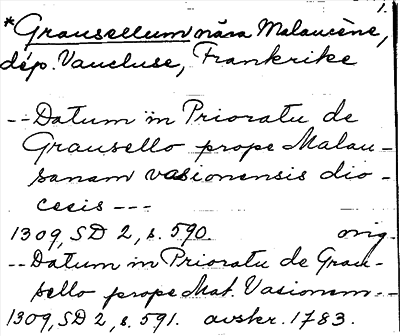 1.
*Grausellum nära Malaucène,
dép. Vaucluse, Frankrike
-- Datum in Prioratu de
Grausello prope Malau-
sanam vasionensis dio-
cesis ---
1309, SD 2, s. 590 orig.
-- Datum in Prioratu de Grau-
sello prope Mat. Vasionem --
1309, SD 2, s. 591. avskr. 1783.